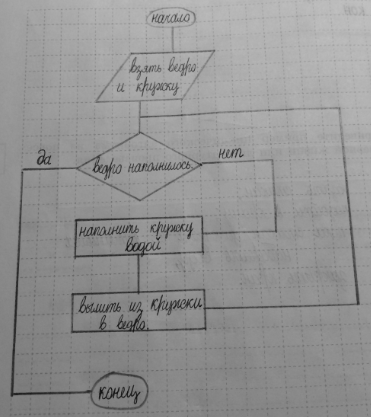 начало
взять ведро
и кружку
да
ведро наполнилось
нет
наполнить кружку
водой
вылить из кружки
в ведро.
конец